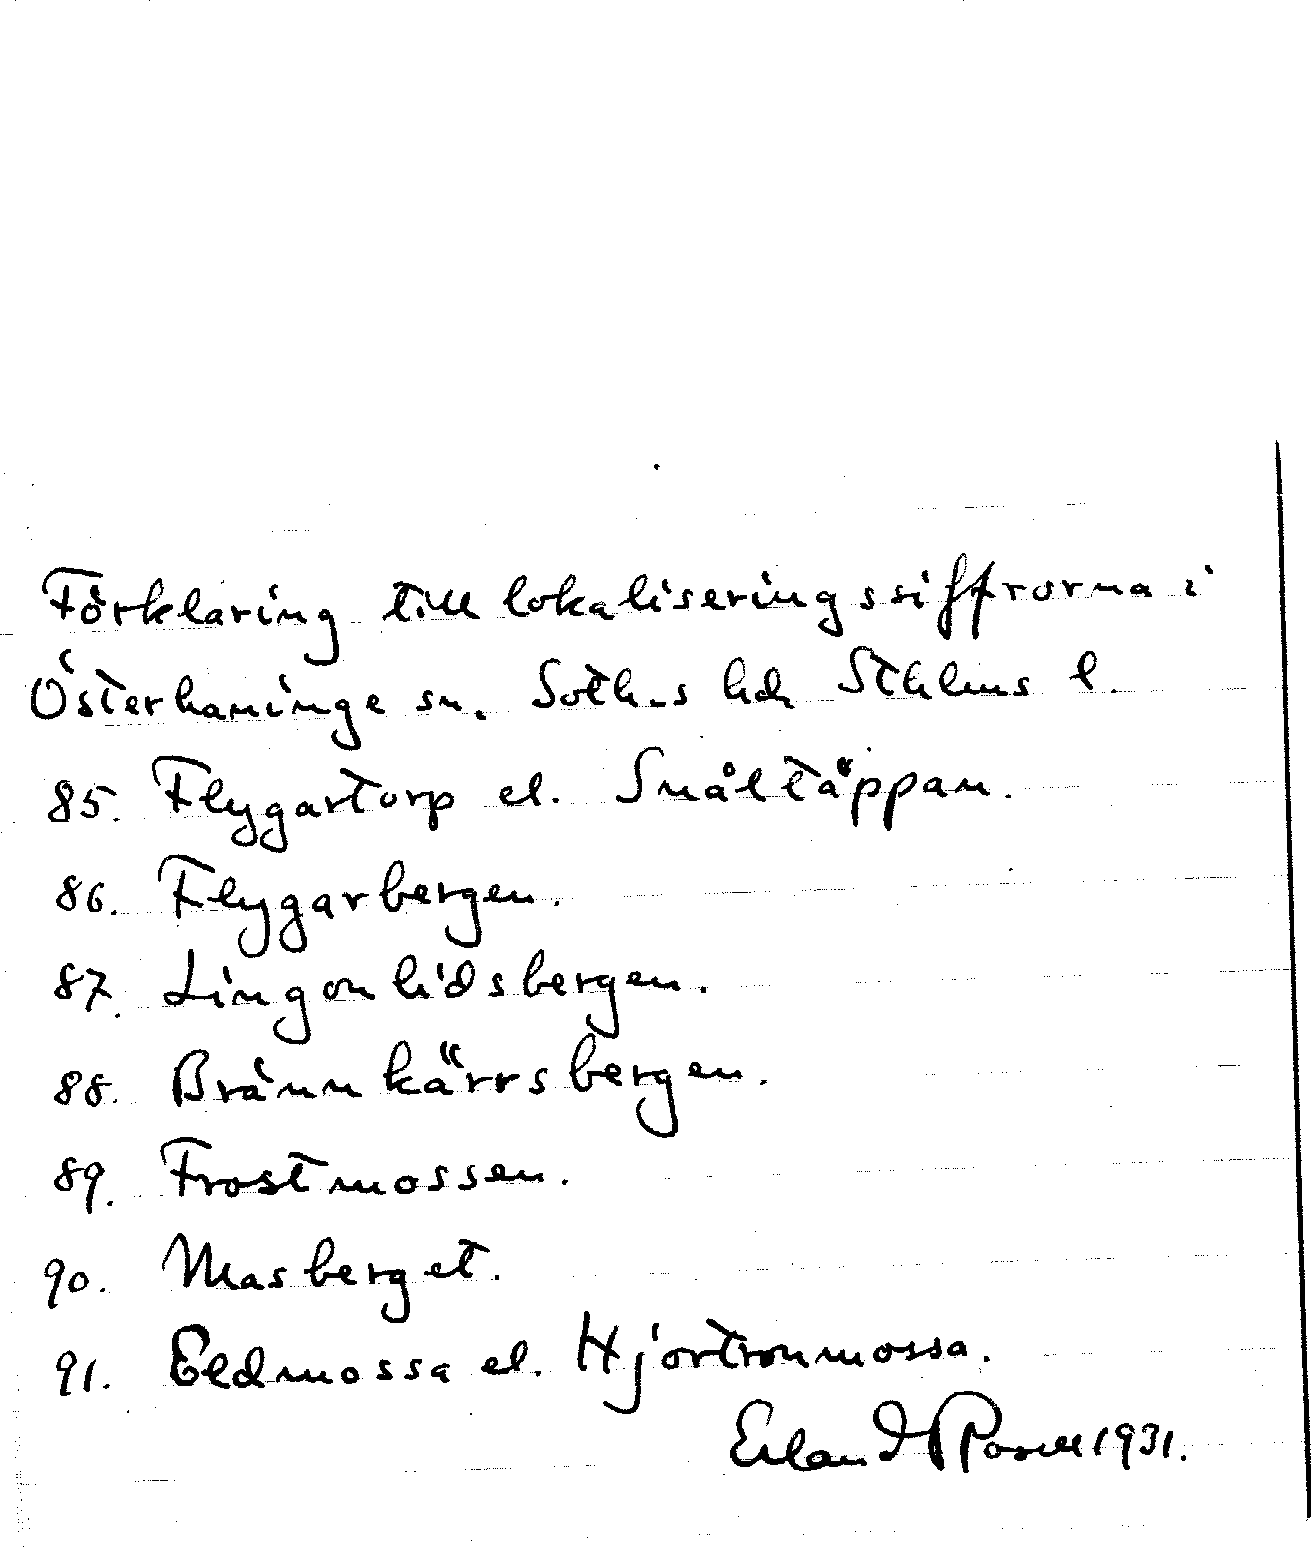 Förklaring till lokaliseringssiffrorna i
Österhaninge sn. Soth-s hd Sthlms l.
85. Flygartorp el. Smältäppan.
86. Flygarbergen.
87. Lingonlidsbergen.
88. Brännkärrsbergen.
89. Frostmossen.
90. Masberget.
91. Eldmossa el. Hjortronmossa.
Erland Rosell 1931.